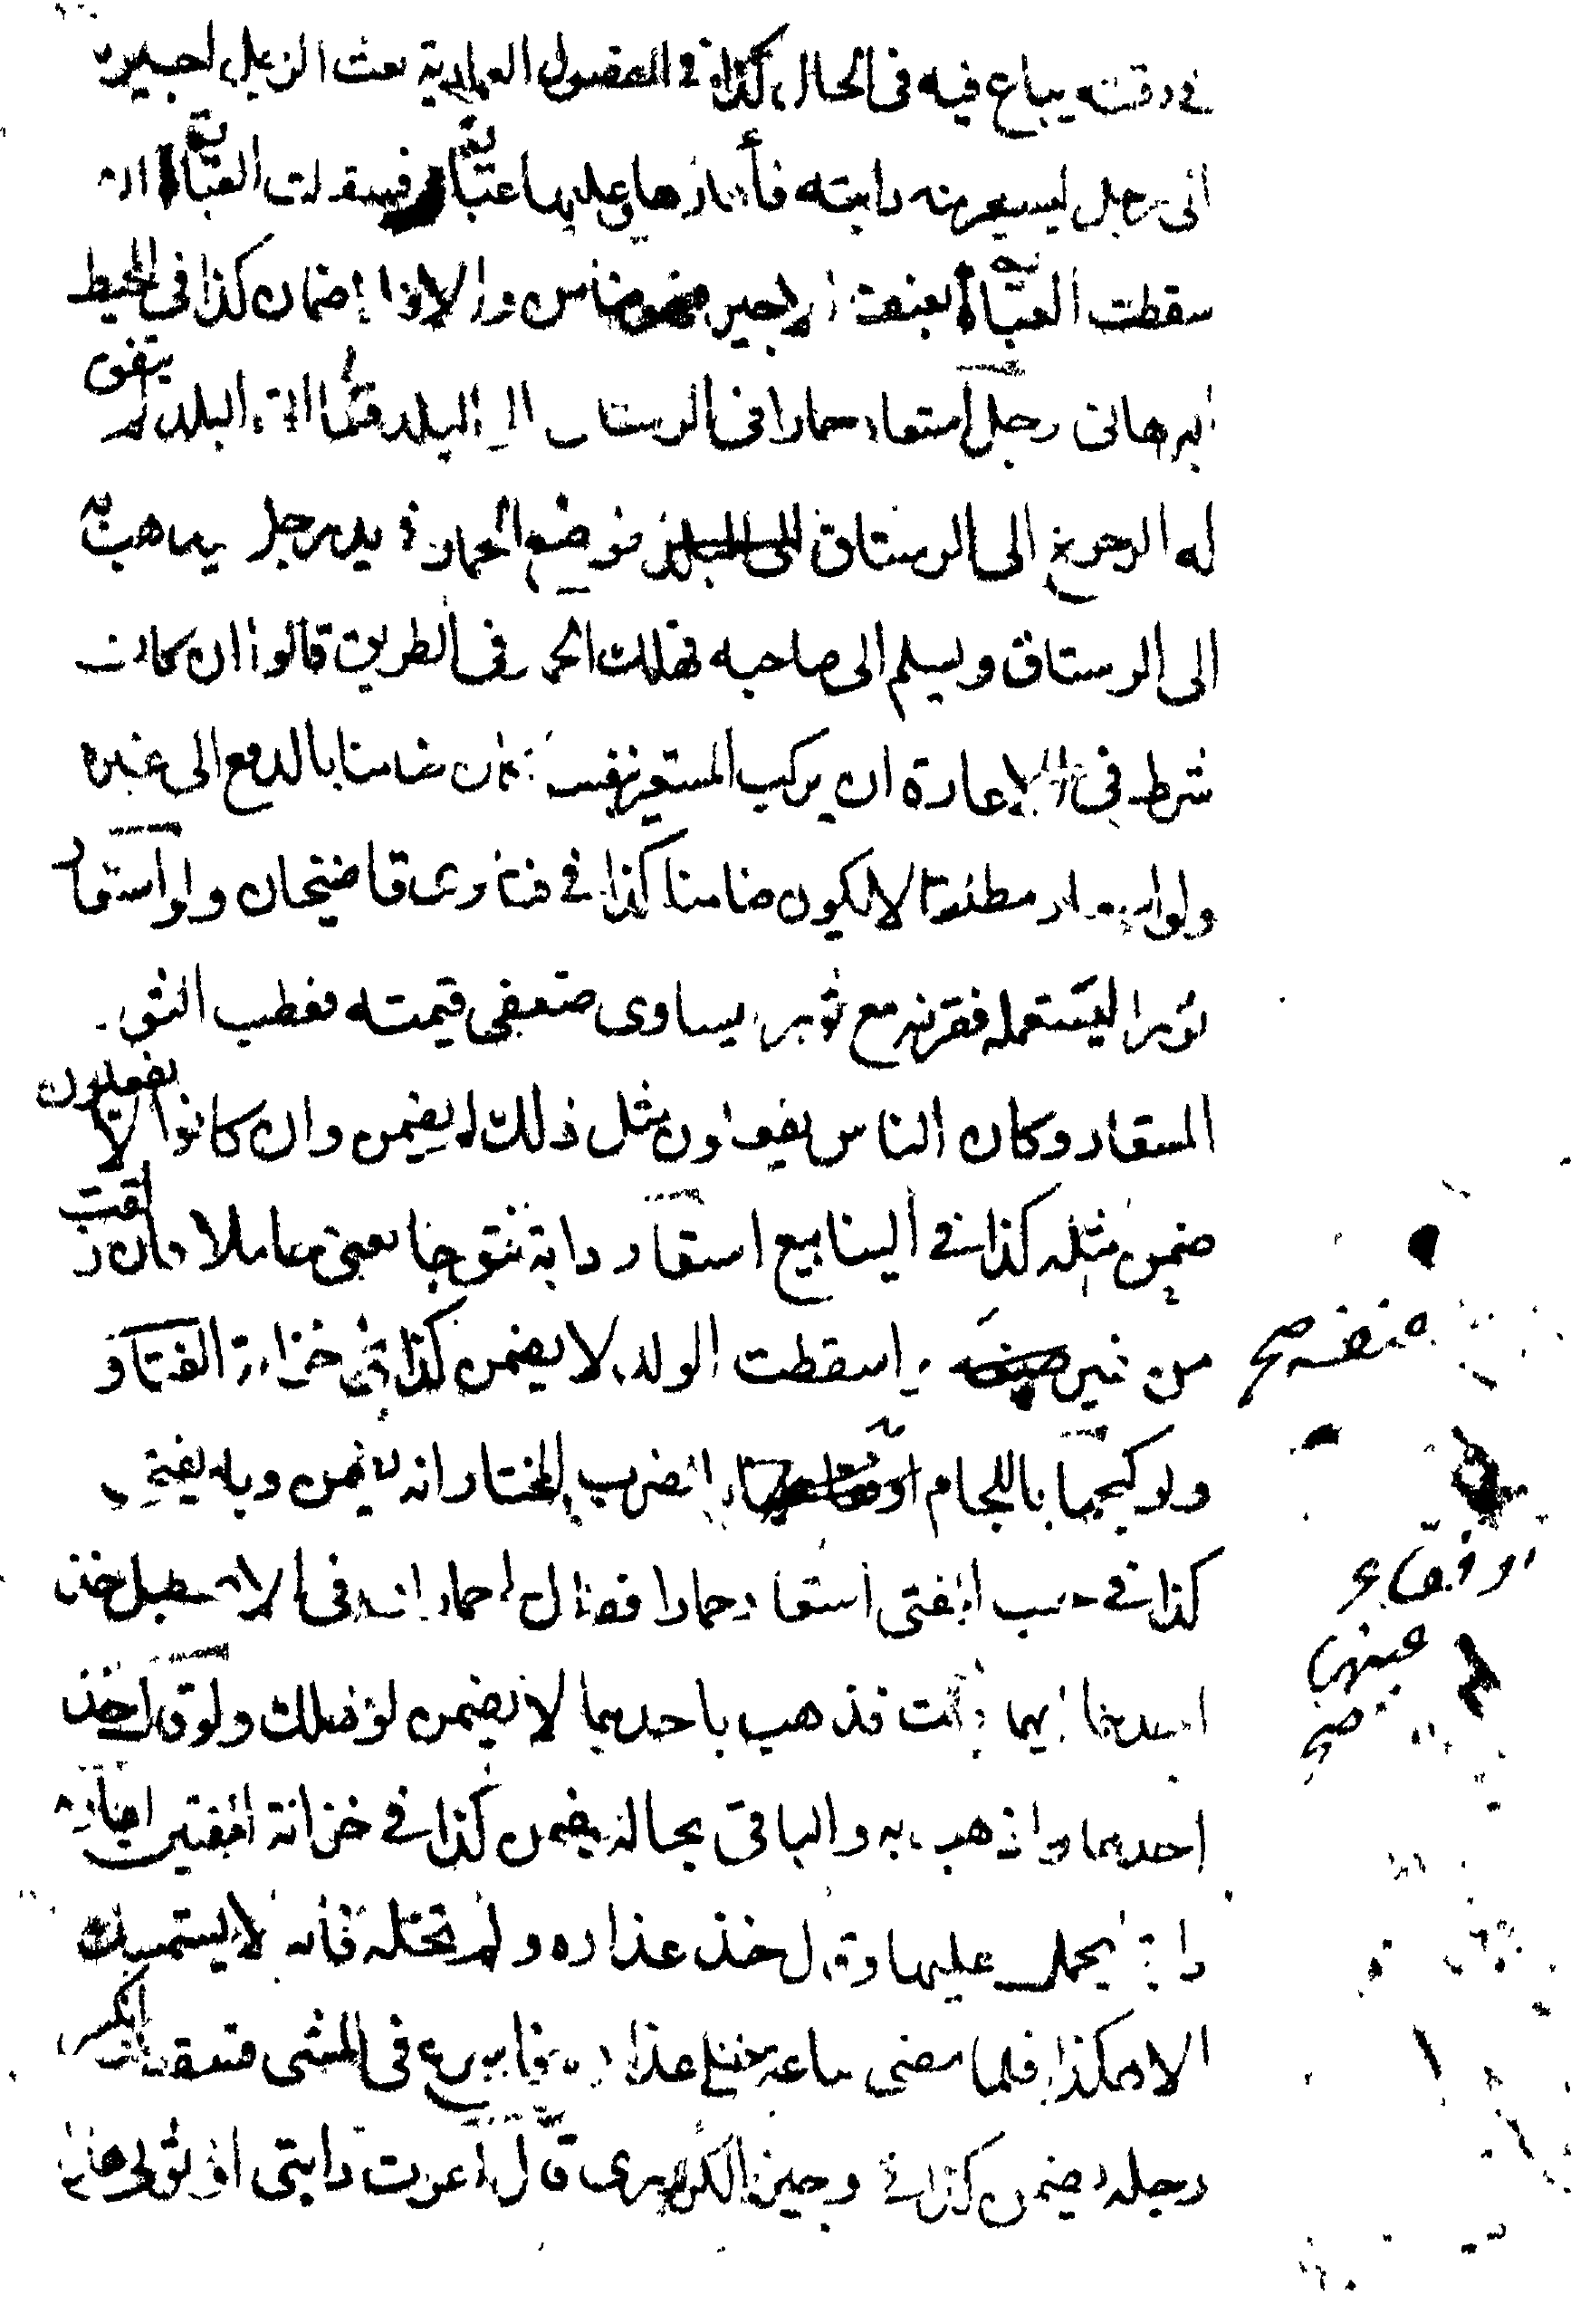 في وقته يباع فيه في الحال كذا في الفصول العمادية بعث الرجل اجيره
الى رجل ليستعير منه دابته فأعارها وعليها عباية فسقطت العباية ان
سقطت العباية بعنف الاجير ضمن والا لا ضمان كذا في المحيط
البرهاني رجل استعار حمارا في الرستاق الى البلد فلما اتى البلد لم يتفق
له الرجوع الى الرستاق فوضع الحمار في يد رجل يذهب به
الى الرستاق ويسلم الى صاحبه فهلك الحمار في الطريق قالوا ان كان
شرط في الاعارة ان يركب المستعير بنفسه كان ضامنا بالدفع الى غيره
ولو استعار مطلقا لا يكون ضامنا كذا في فتاوى قاضيخان ولو استعار
ثورا ليستعمله فقرنه مع ثور يساوى ضعفى قيمته فعطب الثور
المستعار وكان الناس يفعلون مثل ذلك لم يضمن وان كانوا لا يفعلون
ضمن مثله كذا في الينابيع استعار دابة نتوجا يعنى حاملا فان زلقت
من غير صنعه واسقطت الولد لا يضمن كذا في خزانة الفتاوى
ولو كبحها باللجام او فقاء عينها بالضرب المختار انه يضمن وبه يفتى
كذا في حسب المفتى استعار حمارا فقال لى حماران في الاصطبل خذ
احدهما ايهما شئت فذهب باحدهما لا يضمن لو هلك ولو قال خذ
احدهما واذهب به والباقى بحاله يضمن كذا في خزانة المفتين اعاره
دابة يحمل عليها وقال خذ عذاره ولا تخله فانه لا يستمسك
الا هكذا فلما مضى ساعة خلع عذاره فاسرع في المشى فسقط انكسر
رجله يضمن كذا في وجيز الكردرى قال اعرت دابتى او ثوبى هذا
صنعه صح
او فقاء
عينها
صح